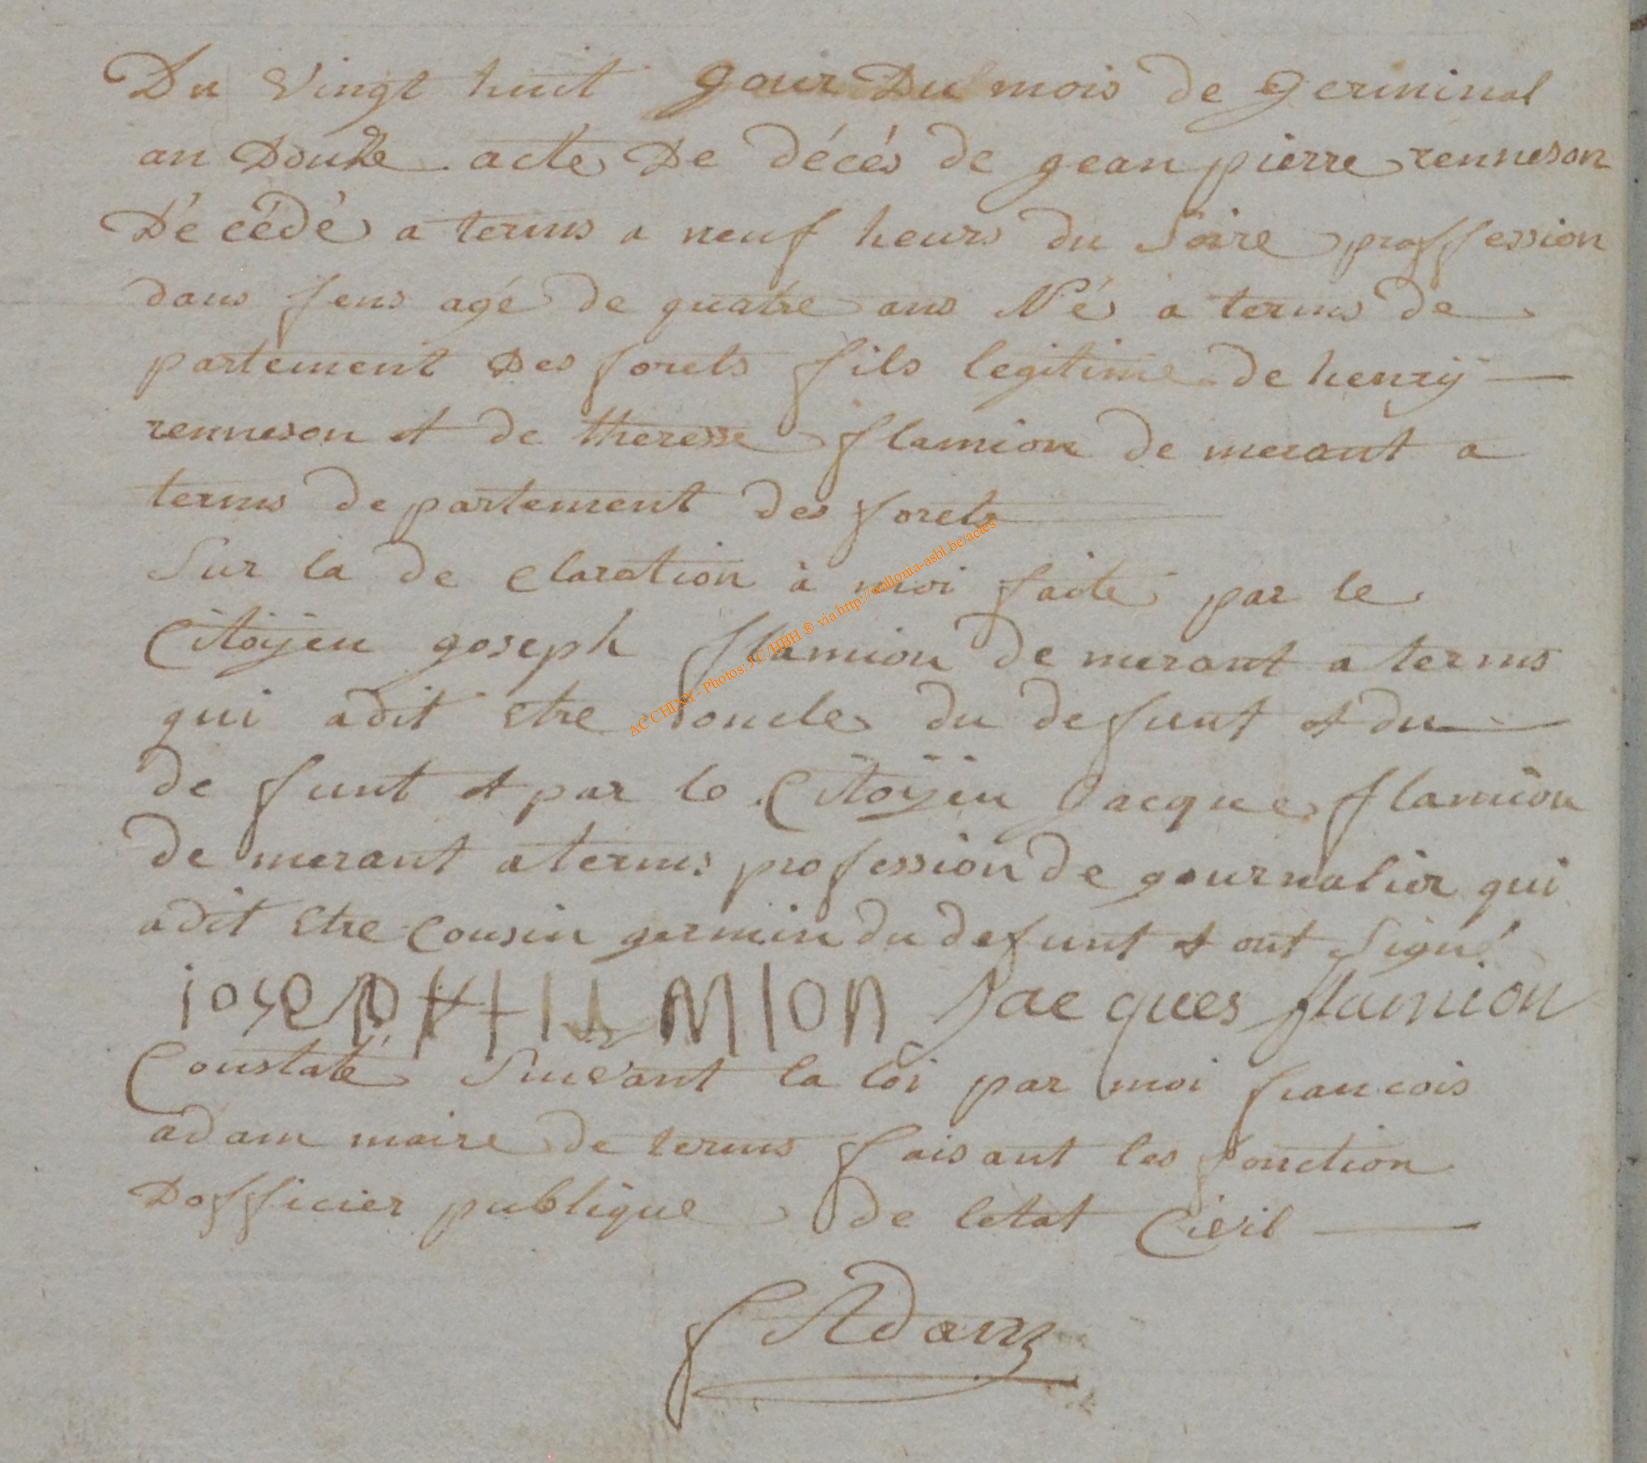 Du vingt huit gour Du mois de germinal
an Douze acte De décés de gean pierre renneson
Dé cédé a terms a neuf heurs du Soire proffession
dans fens agé de quatre ans Né a terms de
partement Des forets fils legitime de henrÿ
renneson et de theresse flamion de merant a
terms de partement des forets
Sur la de claration à moi faite par le
Citoÿen goseph flamion de merant a terms
qui adit etre loncle du defunt et du
de funt et par le Citoÿen Jacque flamion
de merant a terms profession de gournalier qui
adit etre Cousin germin du defunt et ont Signé
iosepH FLAMION Jacques flamion
Constaté Suivant la loi par moi francois
adam maire de terms faisant les fonction
Dofficier publique de letat Civil
f Adam
AC CHINY - Photos: JC HBH ® via http://walloma-asbl.be/actes